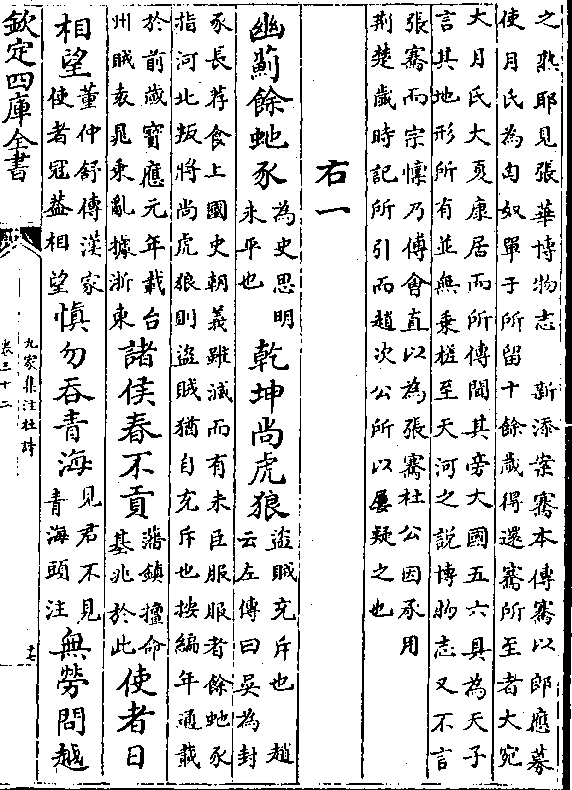 之然耶見張華博物志　新添案騫本傳騫以郎應募
使月氏為匈奴單于所留十餘歲得還騫所至者大宛
大月氏大夏康居而所傳聞其旁大國五六具為天子
言其地形所有並無乗槎至天河之説博物志又不言
張騫而宗懍乃傅會直以為張騫杜公因承用
荆楚歲時記所引而趙次公所以屢疑之也
右一
幽薊餘蛇豕為史思明未平也乾坤尚虎狼盜賊充斥也　趙云左傳曰吳為封
豕長荐食上國史朝義雖滅而有未臣服服者餘蛇豕
指河北叛將尚虎狼則盜賊猶自充斥也按編年通載
於前歲寳應元年載台州賊袁晁乘亂據浙東諸侯春不貢藩鎮擅命基兆於此使者日
相望董仲舒傳漢家使者冠葢相望慎勿吞青海見君不見青海頭注無勞問越
欽定四庫全書
九家集注杜詩
卷三十二
十七